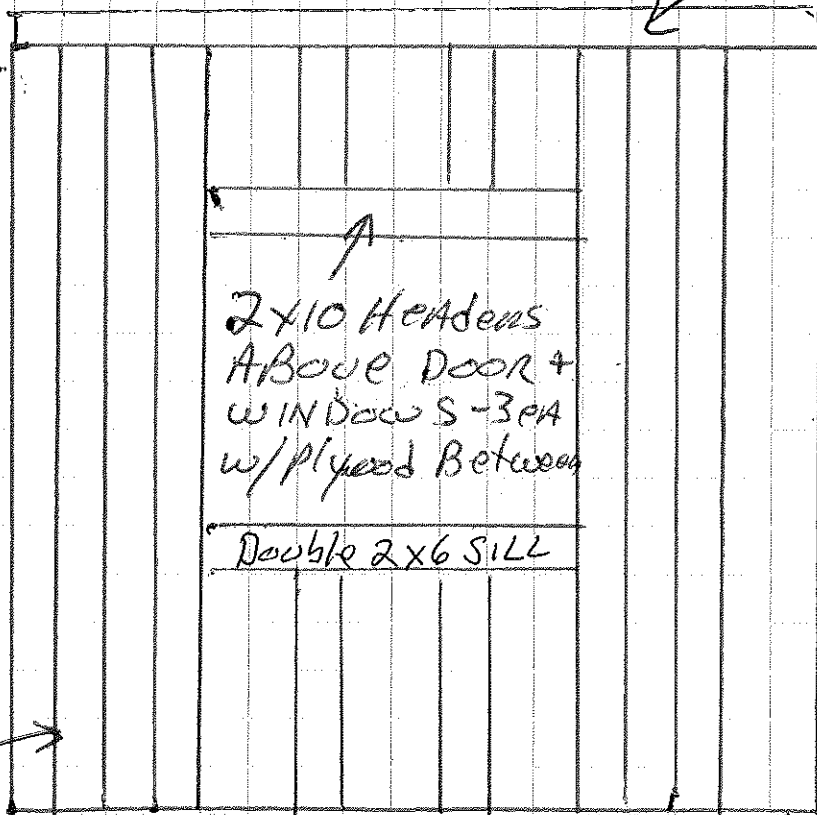 2x10 Headers
Above Door +
Windows - 3 ea
w/ Plywood Between
Double 2x6 Sill